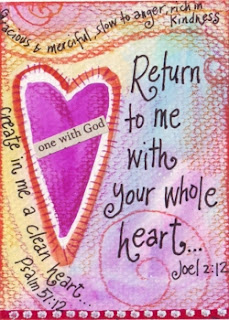 Gracious & merciful, slow to anger, rich in
Kindness
Return
to me
with
your whole
heart...
Joel 2:12
one with God
create in me a clean heart...
Psalm 51:12